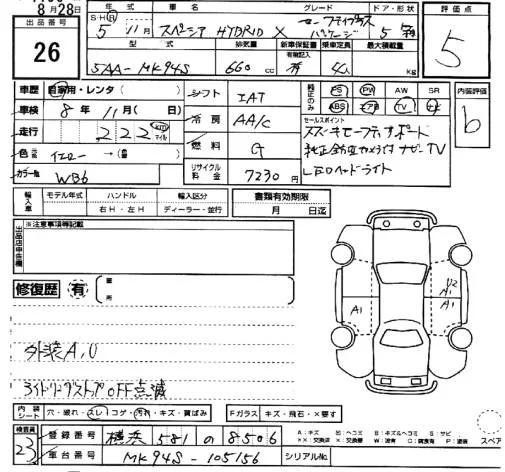 8月28日
年式 車名 グレード ドア・形状 評価点
出品番号 26
S・H・R 5年 11月 スペーシア HYBRID X 5
型式 排気量 新車保証書 乗車定員 最大積載量
有無記入
5AA-MK94S 660 cc 有 4人 kg
車歴 自家用・レンタ( ) シフト IAT 純正のみ PS PW AW SR 内装評価
車検 8年 11月( 日) 冷房 AA/C ABS エアB TV ナビ b
走行 222 km マイル
セールスポイント
スズキセーフティサポート
色 元色 イエロー →( 替) 燃料 G 純正全方位カメラ付ナビTV
カラー№ WB6 リサイクル料金 7230円 LEDヘッドライト
輸入車 モデル年式 ハンドル 輸入区分 書類有効期限
年 右H・左H ディーラー・並行 月 日迄
出品店申告欄 ※注意事項等記載
修復歴 有 箇所
A1 U2 A1
外装A,U
アイドリングストップOFF点滅
内装シート 穴・破れ・スレ・コゲ・汚れ・キズ・質ばみ Fガラス キズ・飛石・×要す
A:キズ U:ヘコミ B:キズ&ヘコミ S:サビ
××:交換済 ×:要交換 W:波有 C:腐食有 P:塗装 スペア
検査員 23 登録番号 横浜 581 の 8506
車台番号 MK94S-105156 シリアル№